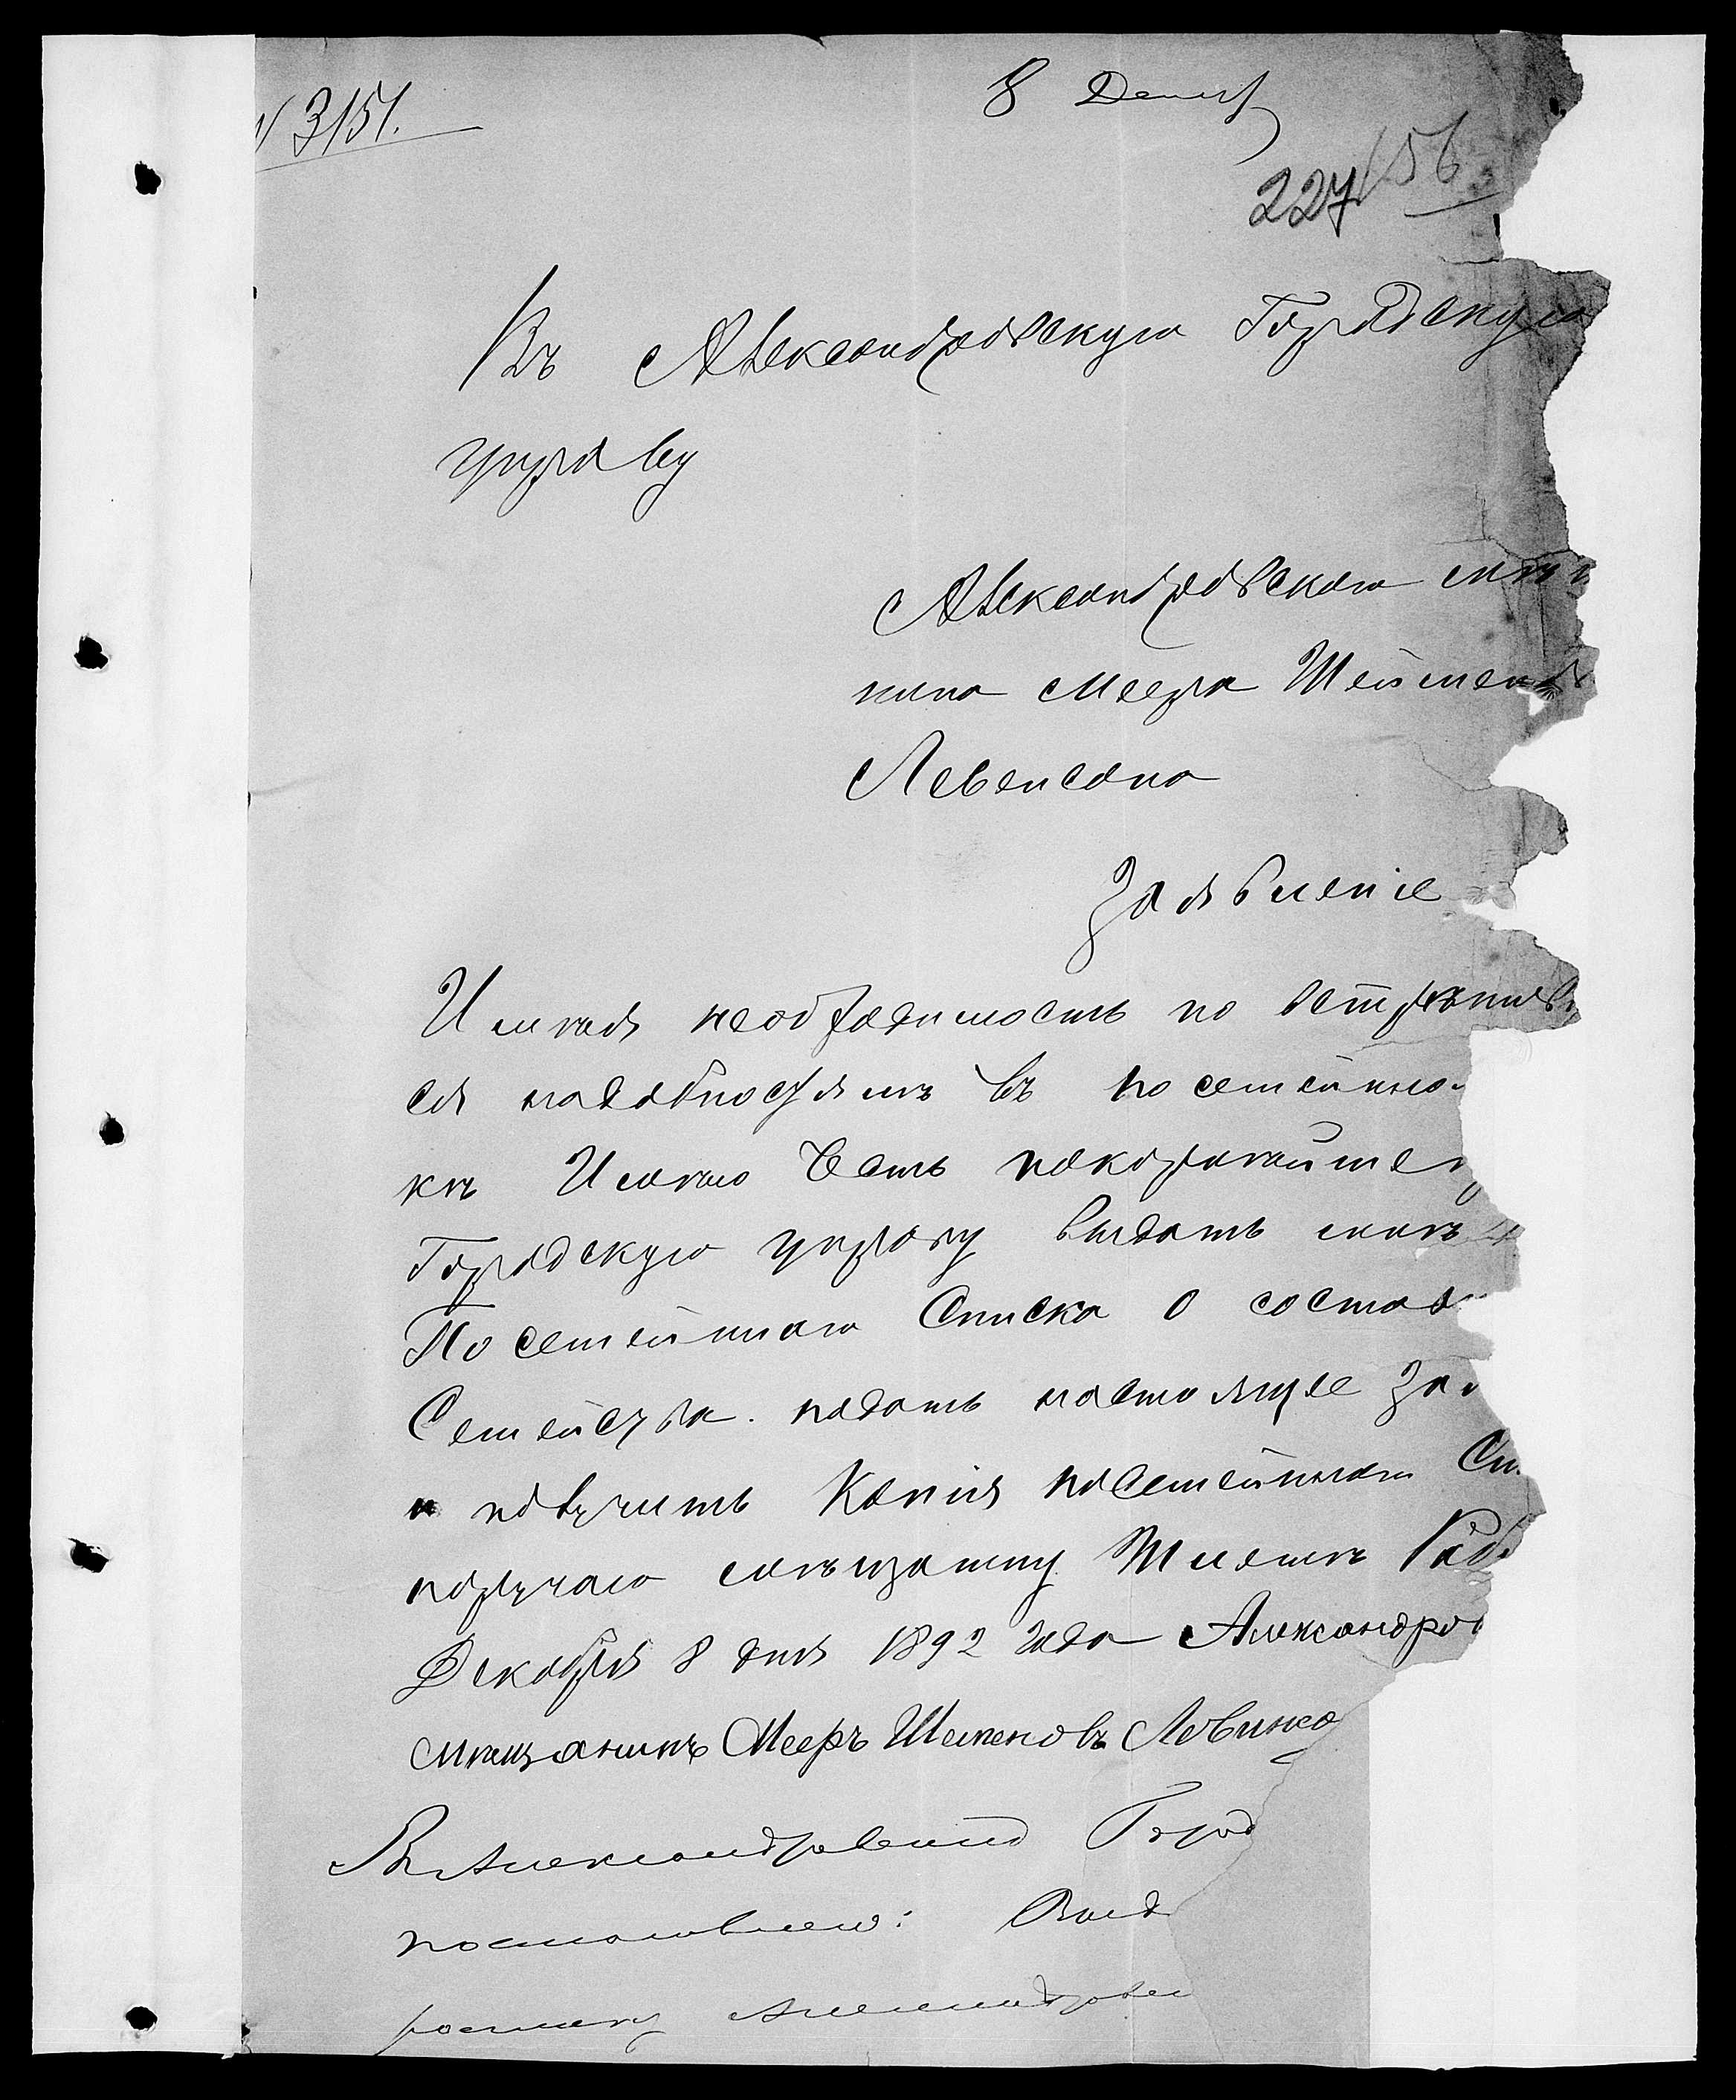 № 3151.
8 Декаб
227 156
Въ Александровскую Городскую
управу
Александровскаго мѣщ
нина Меера Шейменов
Левенсона
Заявленіе
Имѣя необходимость по встрѣтив
ся надобностямъ въ посемейно
къ Имѣю честь покорнѣйше
Городскую управу выдать мнѣ
Посемейнаго Списка о состав
Семейства. подать настоящее Зая
и получить Копія посемейнаго Сп
поручаю мѣщанину
Декабря 8 дня 1892 года Александров
мѣщанинъ Мееръ Шеменовъ Левинсо
Александровской Город
постановлено: Выд
Александровск